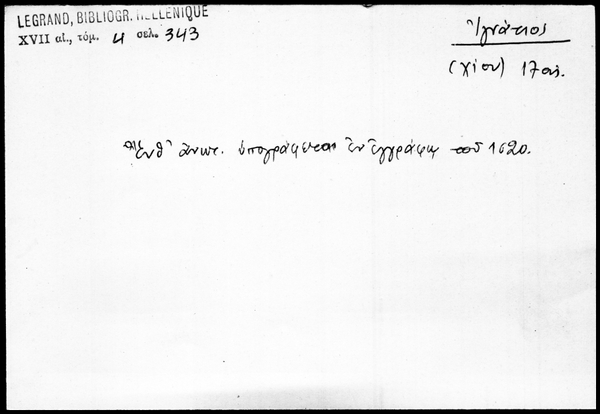 LEGRAND, BIBLIOGR. HELLENIQUE
XVII αἰ., τόμ. 4 σελ. 343
Ἰγνάτιος
(Χίου) 17 αἰ.
ἔνθ' ἀνωτ. ὑπογράφεται ἐν ἐγγράφῳ τοῦ 1620.